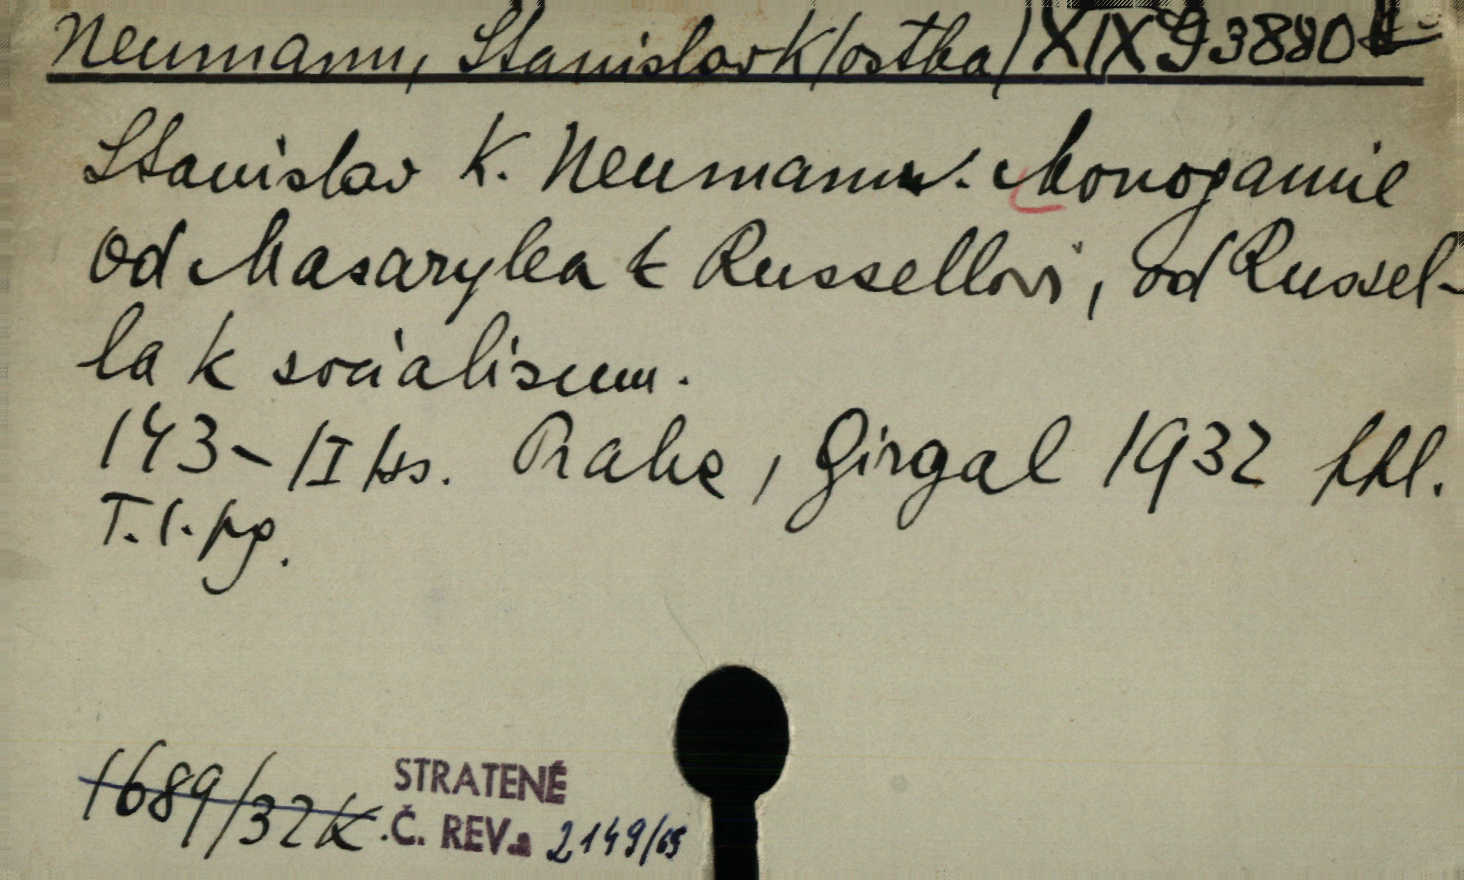 Neumann, Stanislav K/ostka/ XIX G 3880
Stanislav K. Neumann. Monogamie
od Masaryka k Russellovi, od Russel-
la k socialismu.
143-/I/ss. Praha, Girgal 1932 ppl.
T.l.pg.
1689/32 K.
STRATENÉ
Č. REV. 2149/65